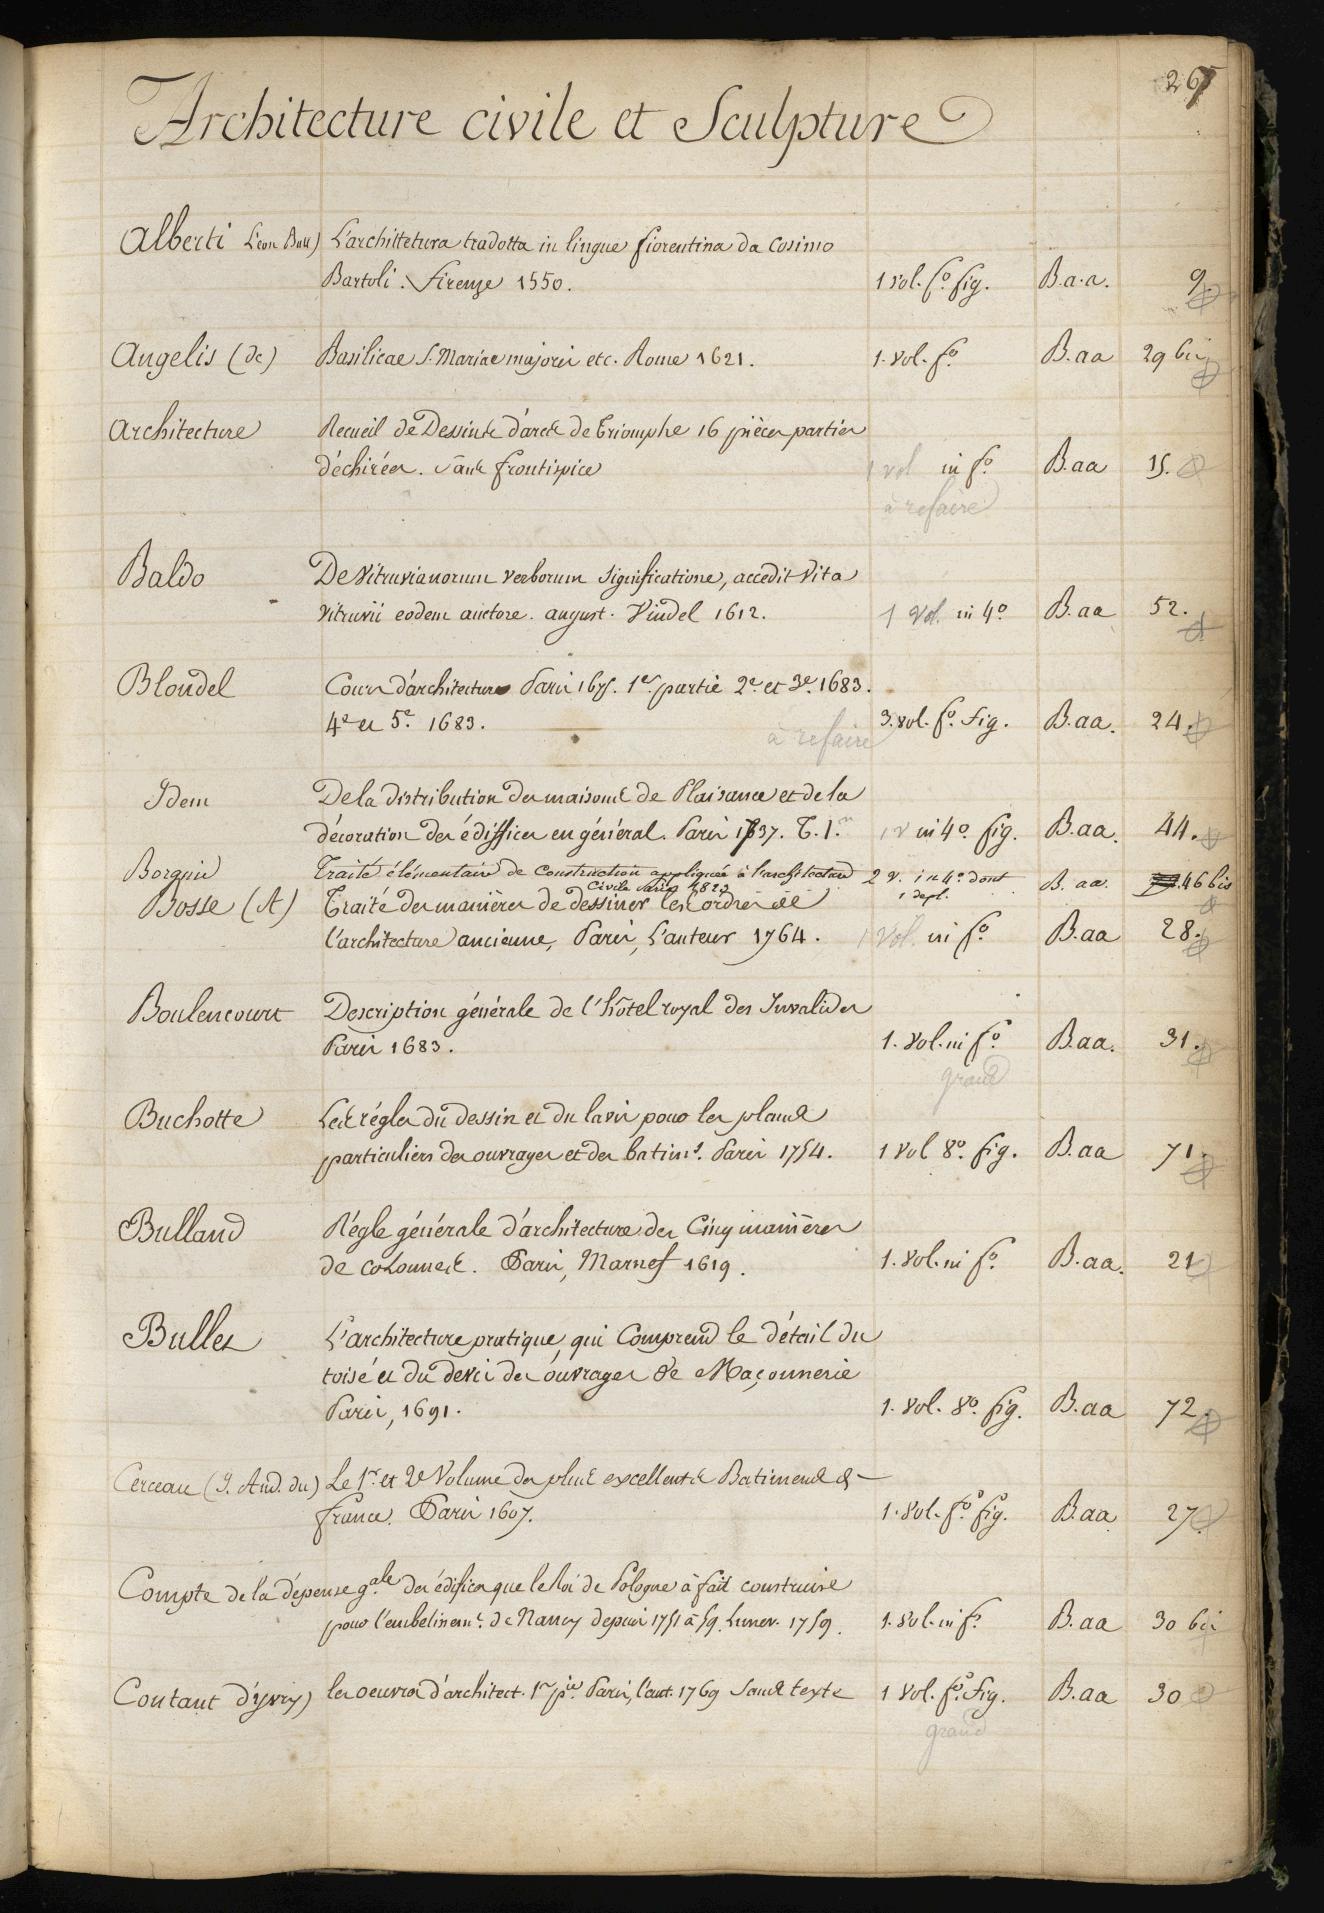 267
Architecture civile et Sculpture
Alberti Léon Batt) L'archittetura tradotta in lingue fiorentina da Cosimo
Bartoli. Firenze 1550. 1 vol. fo. fig. B.a.a. 9.
Angelis (de) Basilicae S. Mariae majoris etc. Rome 1621. 1. vol. fo. B.aa 29 bis
Architecture Recueil de Dessins d'arcs de Triomphe 16 pièces parties
déchirées. sans frontispice 1 vol in fo. B.aa 15.
à refaire
Baldo De Vitruvianorum verborum significatione, accedit Vita
vitruvii eodem auctore. august. Vindel 1612. 1 vol. in 4o B.aa 52.
Blondel Cours d'architecture Paris 1675. 1er. partie 2e. et 3e. 1683.
4e et 5e. 1683. 3. vol. fo. fig. B.aa. 24.
à refaire
Idem De la distribution des maisons de Plaisance et de la
décoration des édiffices en général. Paris 1737. T. 1.er 1 v in 4o. fig. B.aa. 44.
Borgnis Traité élémentaire de Construction appliquée à l'architecture 2 v. in 4o. dont B. aa. 46 bis
Civile Paris 1823 1 depl.
Bosse (A) Traité des manières de dessiner les ordres de
l'architecture ancienne, Paris, L'auteur 1764. 1 vol. in fo. B.aa 28.
Boulencourt Description générale de l'hôtel royal des Invalides
Paris 1683. 1. vol. in fo. B.aa. 31.
grand
Buchotte Les règles du dessin et du lavis pour les plans
particuliers des ouvrages et des batimts. Paris 1754. 1 vol 8o. fig. B.aa 71.
Bulland Règle générale d'architecture des Cinq manières
de colonnes. Paris, Marnef 1619. 1. vol. in fo. B.aa. 21
Bullet L'architecture pratique, qui Comprend le détail du
toisé et du devis des ouvrages de Maçonnerie
Paris, 1691. 1. vol. 8o. fig. B.aa 72.
Cerceau (J. And. du) Le 1er et 2e Volume des plus excellents Batimens de
france. Paris 1607. 1. vol. fo. fig. B.aa 27.
Compte de la dépense gale. des édifices que le Roi de Pologne à fait construire
pour l'embelinemt. de Nancy depuis 1751 à 59. Lunev. 1759. 1. vol. in fo. B.aa 30 bis
Contant d'yvry) les oeuvres d'architect. 1re pie. Paris, l'aut. 1769 sans texte 1 vol. fo. fig. B.aa 30
grand